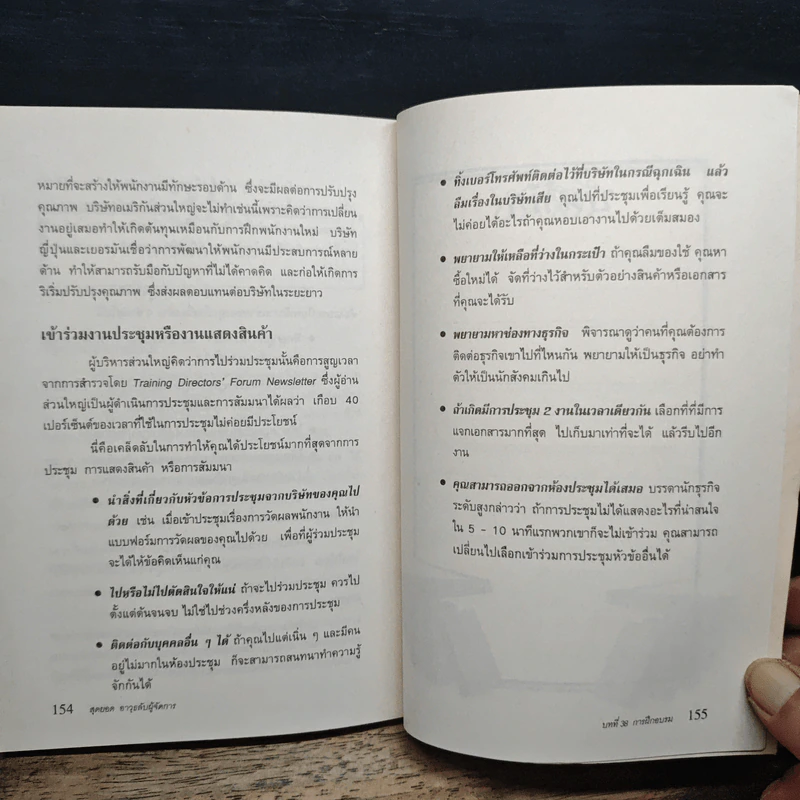 หมายที่จะสร้างให้พนักงานมีทักษะรอบด้าน ซึ่งจะมีผลต่อการปรับปรุง
คุณภาพ บริษัทอเมริกันส่วนใหญ่จะไม่ทำเช่นนี้เพราะคิดว่าการเปลี่ยน
งานอยู่เสมอทำให้เกิดต้นทุนเหมือนกับการฝึกพนักงานใหม่ บริษัท
ญี่ปุ่นและเยอรมันเชื่อว่าการพัฒนาให้พนักงานมีประสบการณ์หลาย
ด้าน ทำให้สามารถรับมือกับปัญหาที่ไม่ได้คาดคิด และก่อให้เกิดการ
ริเริ่มปรับปรุงคุณภาพ ซึ่งส่งผลตอบแทนต่อบริษัทในระยะยาว
เข้าร่วมงานประชุมหรืองานแสดงสินค้า
ผู้บริหารส่วนใหญ่คิดว่าการไปร่วมประชุมนั้นคือการสูญเวลา
จากการสำรวจโดย Training Directors' Forum Newsletter ซึ่งผู้อ่าน
ส่วนใหญ่เป็นผู้ดำเนินการประชุมและการสัมมนาได้ผลว่า เกือบ 40
เปอร์เซ็นต์ของเวลาที่ใช้ในการประชุมไม่ค่อยมีประโยชน์
นี่คือเคล็ดลับในการทำให้คุณได้ประโยชน์มากที่สุดจากการ
ประชุม การแสดงสินค้า หรือการสัมมนา
• นำสิ่งที่เกี่ยวกับหัวข้อการประชุมจากบริษัทของคุณไป
ด้วย เช่น เมื่อเข้าประชุมเรื่องการวัดผลพนักงาน ให้นำ
แบบฟอร์มการวัดผลของคุณไปด้วย เพื่อที่ผู้ร่วมประชุม
จะได้ให้ข้อคิดเห็นแก่คุณ
• ไปหรือไม่ไปตัดสินใจให้แน่ ถ้าจะไปร่วมประชุม ควรไป
ตั้งแต่ต้นจนจบ ไม่ใช่ไปช่วงครึ่งหลังของการประชุม
• ติดต่อกับบุคคลอื่น ๆ ได้ ถ้าคุณไปแต่เนิ่น ๆ และมีคน
อยู่ไม่มากในห้องประชุม ก็จะสามารถสนทนาทำความรู้
จักกันได้
154 สุดยอด อาวุธลับผู้จัดการ
• ทิ้งเบอร์โทรศัพท์ติดต่อไว้ที่บริษัทในกรณีฉุกเฉิน แล้ว
ลืมเรื่องในบริษัทเสีย คุณไปที่ประชุมเพื่อเรียนรู้ คุณจะ
ไม่ค่อยได้อะไรถ้าคุณหอบเอางานไปด้วยเต็มสมอง
• พยายามให้เหลือที่ว่างในกระเป๋า ถ้าคุณลืมของใช้ คุณหา
ซื้อใหม่ได้ จัดที่ว่างไว้สำหรับตัวอย่างสินค้าหรือเอกสาร
ที่คุณจะได้รับ
• พยายามหาช่องทางธุรกิจ พิจารณาดูว่าคนที่คุณต้องการ
ติดต่อธุรกิจเขาไปที่ไหนกัน พยายามให้เป็นธุรกิจ อย่าทำ
ตัวให้เป็นนักสังคมเกินไป
• ถ้าเกิดมีการประชุม 2 งานในเวลาเดียวกัน เลือกที่ที่มีการ
แจกเอกสารมากที่สุด ไปเก็บมาเท่าที่จะได้ แล้วรีบไปอีก
งาน
• คุณสามารถออกจากห้องประชุมได้เสมอ บรรดานักธุรกิจ
ระดับสูงกล่าวว่า ถ้าการประชุมไม่ได้แสดงอะไรที่น่าสนใจ
ใน 5 - 10 นาทีแรกพวกเขาก็จะไม่เข้าร่วม คุณสามารถ
เปลี่ยนไปเลือกเข้าร่วมการประชุมหัวข้ออื่นได้
บทที่ 38 การฝึกอบรม 155